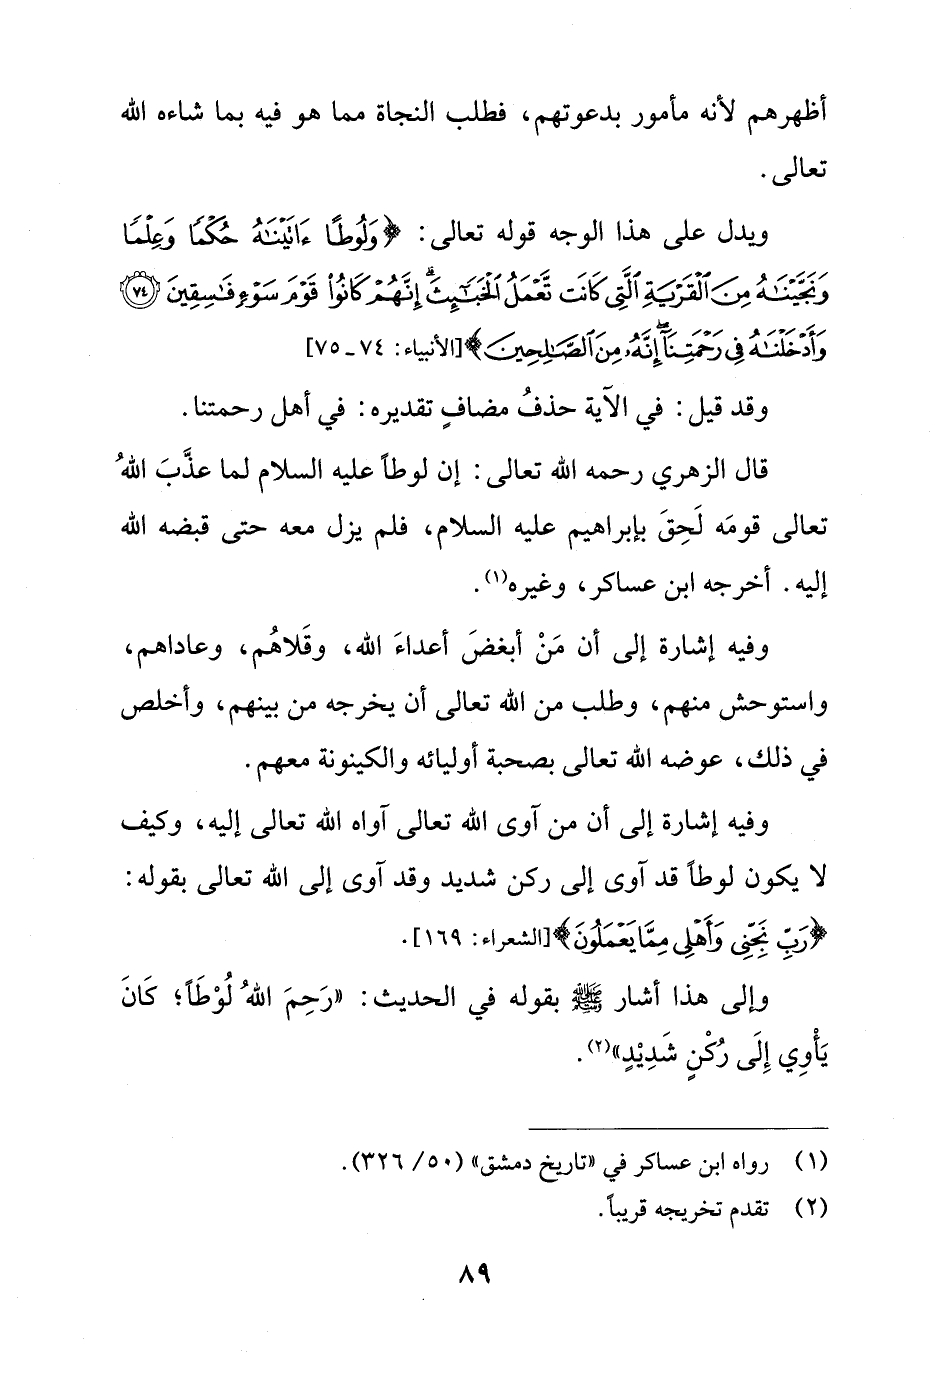 أظهرهم لأنه مأمور بدعوتهم، فطلب النجاة مما هو فيه بما شاءه الله
تعالى.
ويدل على هذا الوجه قوله تعالى: ﴿وَلُوطًا ءَاتَيْنَٰهُ حُكْمًا وَعِلْمًا
وَنَجَّيْنَٰهُ مِنَ ٱلْقَرْيَةِ ٱلَّتِى كَانَت تَّعْمَلُ ٱلْخَبَٰٓئِثَۗ إِنَّهُمْ كَانُوا۟ قَوْمَ سَوْءٍ فَٰسِقِينَ ﴿٧٤﴾
وَأَدْخَلْنَٰهُ فِى رَحْمَتِنَآۖ إِنَّهُۥ مِنَ ٱلصَّٰلِحِينَ﴾ [الأنبياء: ٧٤ ـ ٧٥]
وقد قيل: في الآية حذفُ مضافٍ تقديره: في أهل رحمتنا.
قال الزهري رحمه الله تعالى: إن لوطاً عليه السلام لما عذَّبَ اللهُ
تعالى قومَه لَحِقَ بإبراهيم عليه السلام، فلم يزل معه حتى قبضه الله
إليه. أخرجه ابن عساكر، وغيره(١).
وفيه إشارة إلى أن مَنْ أبغضَ أعداءَ الله، وقَلاهُم، وعاداهم،
واستوحش منهم، وطلب من الله تعالى أن يخرجه من بينهم، وأخلص
في ذلك، عوضه الله تعالى بصحبة أوليائه والكينونة معهم.
وفيه إشارة إلى أن من آوى الله تعالى آواه الله تعالى إليه، وكيف
لا يكون لوطاً قد آوى إلى ركن شديد وقد آوى إلى الله تعالى بقوله:
﴿رَبِّ نَجِّنِى وَأَهْلِى مِمَّا يَعْمَلُونَ﴾ [الشعراء: ١٦٩].
وإلى هذا أشار ﷺ بقوله في الحديث: «رَحِمَ اللهُ لُوْطَاً؛ كَانَ
يَأْوِي إِلَى رُكْنٍ شَدِيْدٍ»(٢).
(١) رواه ابن عساكر في «تاريخ دمشق» (٥٠/ ٣٢٦).
(٢) تقدم تخريجه قريباً.
٨٩